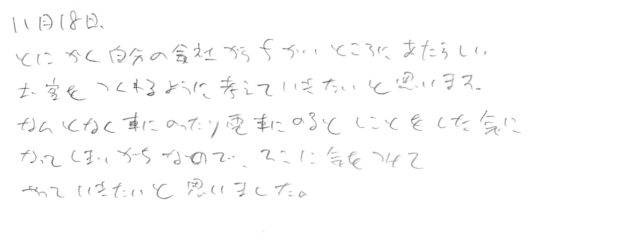 11月18日、
とにかく自分の会社からちかいところに、あたらしい
お宝をつくれるように考えていきたいと思います。
なんとなく車にのったり電車にのるとしごとをした気に
なってしまいがちなので、そこに気をつけて
やっていきたいと思いました。